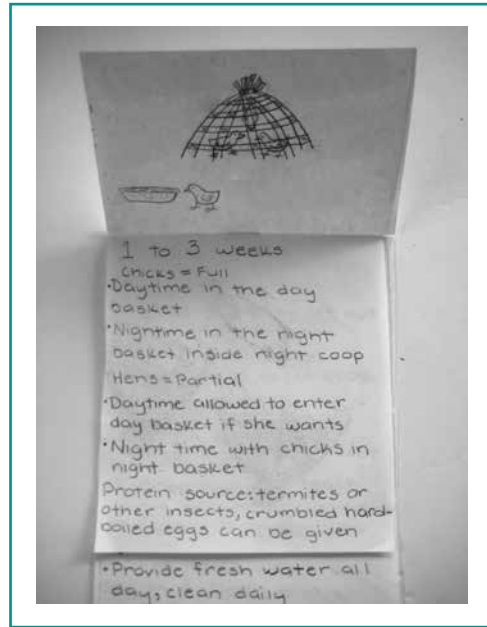 1 to 3 weeks
Chicks = Full
•Daytime in the day
basket
•Nightime in the night
basket inside night coop
Hens=Partial
•Daytime allowed to enter
day basket if she wants
•Night time with chicks in
night basket
Protein source:termites or
other insects, crumbled hard-
boiled eggs can be given
•Provide fresh water all
day, clean daily